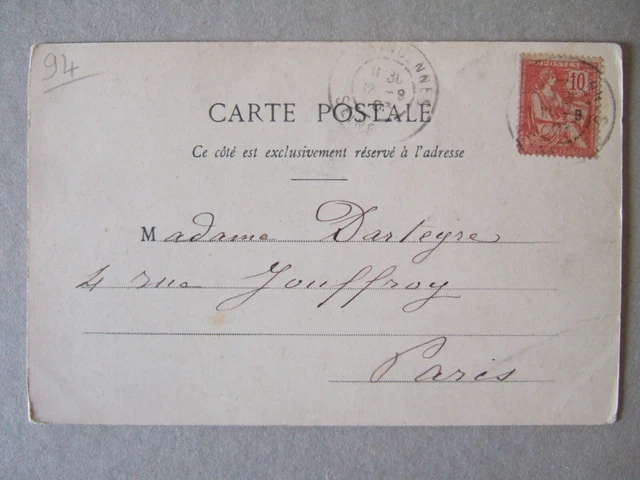 94
POSTES
10
CARTE POSTALE
Ce côté est exclusivement réservé à l'adresse
Madame Darteyre
4 rue Jouffroy
Paris